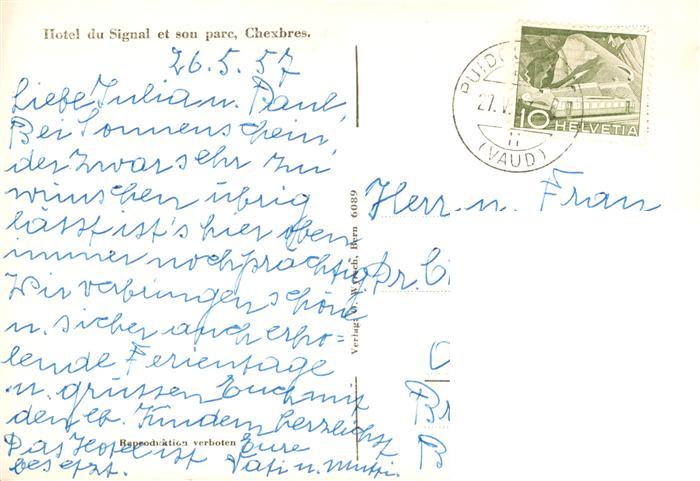 Hotel du Signal et son parc, Chexbres.
26.5.57
Liebe Julia u. Paul,
Bei Sonnenschein,
der zwar sehr zu
wünschen übrig
lässt ist's hier oben
immer noch prächtig.
Wir verbringen schöne
u. sicher auch erho-
lende Ferientage
u. grüssen Euch mit
den lb. Kindern herzlichst
Das Hotel ist Eure
besetzt. Vati u. Mutti.
Reproduktion verboten
Bern 6089
27. V.
(VAUD)
10 HELVETIA
Herr u. Frau
Dr.